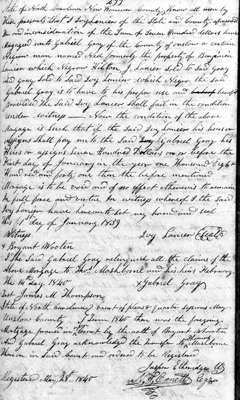 State of North Carolina New Hanover County Know all men by
these presents that I Ivy Lanier of the State and County aforesaid
in consideration of the Sum of Seven Hundred Dollars have
Mortgaged unto Gabriel Gray of the County of Onslow a certain
Negro man named formerly the property of Benjamin
Lanier which Negro I Lanier sold to said Gray
and Gray sold to Said Ivy Lanier which Negro the said
Gabriel Gray is to have to his proper use and
provided the Said Ivy Lanier shall fail in the condition
under written Now the condition of the above
Mortgage is Such that if the Said Ivy Lanier his heirs or
assigns shall pay unto the said Gabriel Gray his
Heirs or assigns Seven Hundred Dollars on or before the
first day of January in the year one Thousand Eight
Hundred and forty one then the before mentioned
Mortgage is to be void and of no effect otherwise to remain
in full force and virtue for witness whereof I the said
Ivy Lanier have hereunto set my hand and seal
day of January 1839
Witness Ivy Lanier
Bryant Wooten
I the Said Gabriel Gray relinquish all the claims of the
above Mortgage to Thos. Mashborne and his heirs February
The 14 day 1840 Gabriel Gray
Test James M. Thompson
State of North Carolina Court of pleas & quarter Sessions May
Onslow County Term 1840 then was the foregoing
Mortgage proved in Court by the oath of Bryant Wooten
And Gabriel Gray acknowledged the transfer to Mashborne
Heaven in said Court and ordered to be Registered
Jasper Etheridge
Registered May 28th 1840